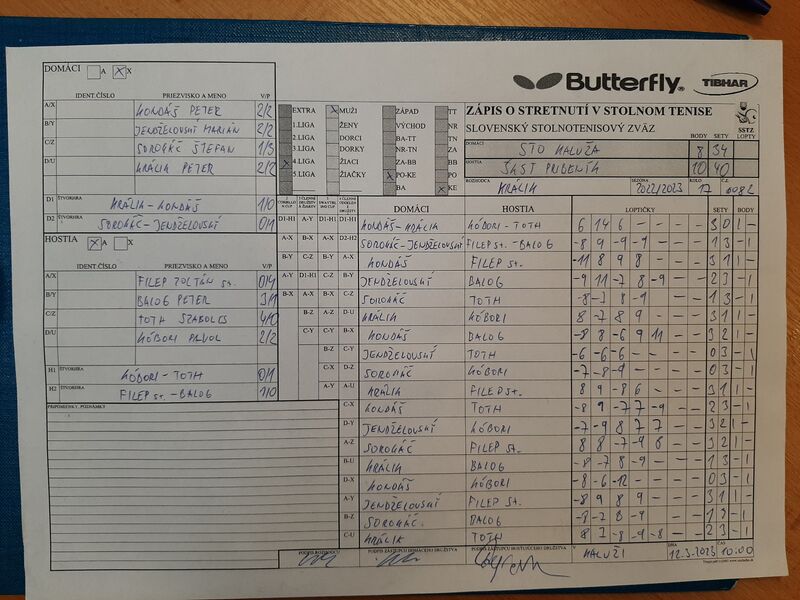 DOMÁCI A X X
IDENT.ČÍSLO PRIEZVISKO A MENO V/P
A/X KONDÁŠ PETER 2/2
B/Y JENDŽELOVSKÝ MARIÁN 2/2
C/Z SOROKÁČ ŠTEFAN 1/3
D/U KRÁLIK PETER 2/2
D1 ŠTVORHRA KRÁLIK-KONDÁŠ 1/0
D2 ŠTVORHRA SOROKÁČ-JENDŽELOVSKÝ 0/1
HOSTIA X A X
IDENT.ČÍSLO PRIEZVISKO A MENO V/P
A/X FILEP ZOLTÁN St. 0/4
B/Y BALOG PETER 3/1
C/Z TOTH SZABOLCS 4/0
D/U KÓBORI PAVOL 2/2
H1 ŠTVORHRA KÓBORI-TOTH 0/1
H2 ŠTVORHRA FILEP St.-BALOG 1/0
PRIPOMIENKY, POZNÁMKY
Butterfly
TIBHAR
EXTRA X MUŽI ZÁPAD TT
1.LIGA ŽENY VÝCHOD NR
2.LIGA DORCI BA-TT TN
3.LIGA DORKY NR-TN ZA
X 4.LIGA ŽIACI ZA-BB BB
5.LIGA ŽIAČKY X PO-KE PO
BA X KE
ZÁPIS O STRETNUTÍ V STOLNOM TENISE
SLOVENSKÝ STOLNOTENISOVÝ ZVÄZ
SSTZ
BODY SETY LOPTY
DOMÁCI STO KALUŽA 8 34
HOSTIA ŠKST PRIBENÍK 10 40
ROZHODCA KRÁLIK SEZÓNA 2022/2023 KOLO 17
DOMÁCI HOSTIA LOPTIČKY SETY BODY
KONDÁŠ-KRÁLIK KÓBORI-TOTH 6 14 6 - - - - 3 0 1 -
SOROKÁČ-JENDŽELOVSKÝ FILEP St.-BALOG -8 9 -9 -9 - - - 1 3 - 1
KONDÁŠ FILEP St. -11 8 9 8 - - - 3 1 1 -
JENDŽELOVSKÝ BALOG -9 11 -7 8 -9 - - 2 3 - 1
SOROKÁČ TOTH -8 -3 8 -9 - - - 1 3 - 1
KRÁLIK KÓBORI 8 -7 8 9 - - - 3 1 1 -
KONDÁŠ BALOG -8 8 -6 9 11 - - 3 2 1 -
JENDŽELOVSKÝ TOTH -6 -6 -6 - - - - 0 3 - 1
SOROKÁČ KÓBORI -7 -8 -9 - - - - 0 3 - 1
KRÁLIK FILEP St. 8 9 -8 6 - - - 3 1 1 -
KONDÁŠ TOTH -8 9 -7 7 -9 - - 2 3 - 1
JENDŽELOVSKÝ KÓBORI -7 -9 8 7 7 - - 3 2 1 -
SOROKÁČ FILEP St. 8 8 -7 -9 6 - - 3 2 1 -
KRÁLIK BALOG -8 -7 8 -9 - - - 1 3 - 1
KONDÁŠ KÓBORI -8 -6 -12 - - - - 0 3 - 1
JENDŽELOVSKÝ FILEP St. -8 9 8 9 - - - 3 1 1 -
SOROKÁČ BALOG -8 -7 8 -9 - - - 1 3 - 1
KRÁLIK TOTH 8 7 -8 -9 -8 - - 2 3 - 1
PODPIS ROZHODCU PODPIS ZÁSTUPCU DOMÁCEHO DRUŽSTVA PODPIS ZÁSTUPCU HOSŤUJÚCEHO DRUŽSTVA V KALUŽI DŇA 12.3.2023 ČAS 10:00